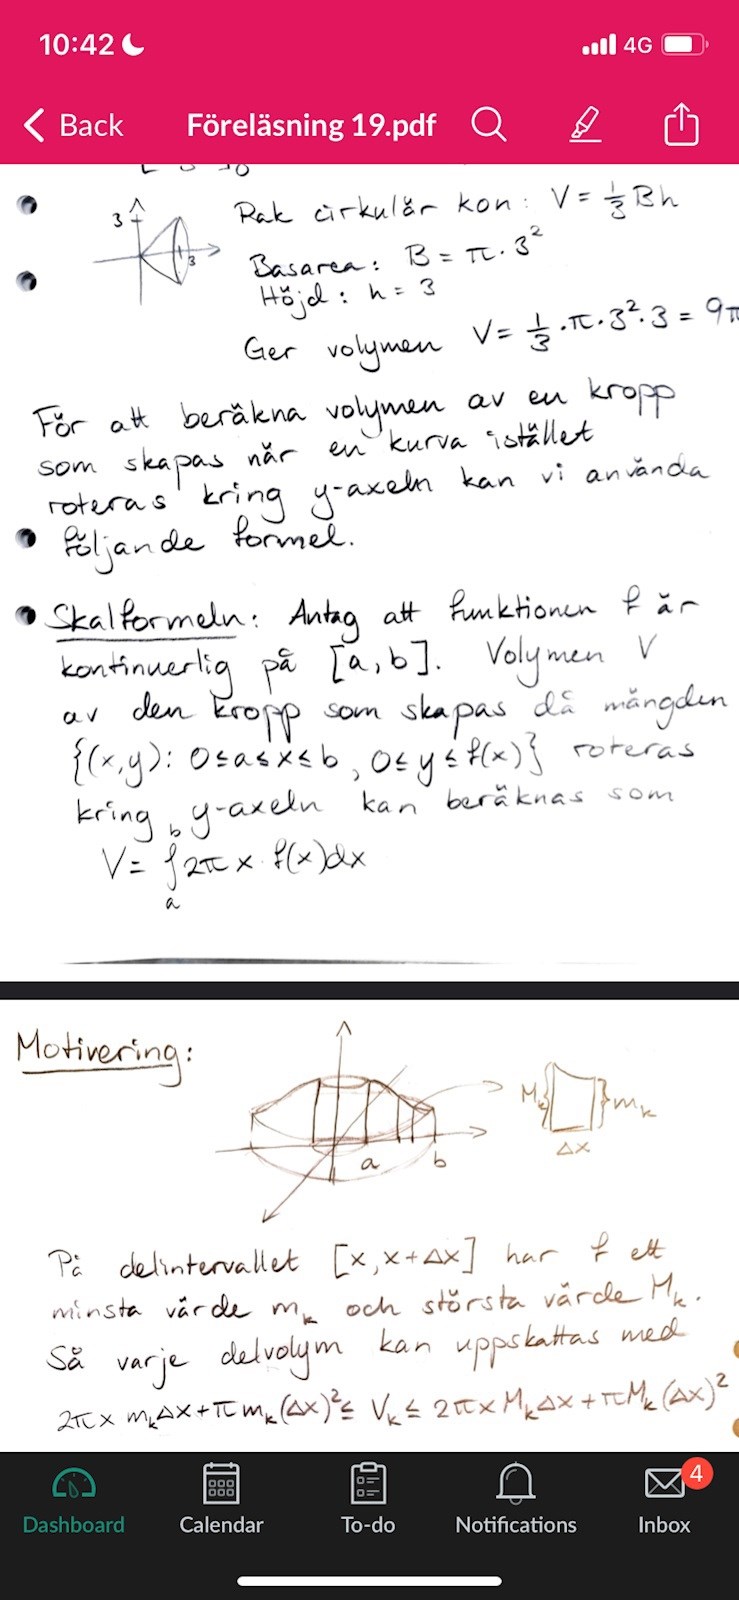 10:42
4G
Back
Föreläsning 19.pdf
3
3
Rak cirkulär kon: V = 1/3 Bh
Basarea: B = π · 3²
Höjd: h = 3
Ger volymen V = 1/3 · π · 3² · 3 = 9π
För att beräkna volymen av en kropp
som skapas när en kurva istället
roteras kring y-axeln kan vi använda
följande formel.
Skalformeln: Antag att funktionen f är
kontinuerlig på [a, b]. Volymen V
av den kropp som skapas då mängden
{(x,y): 0≤a≤x≤b, 0≤y≤f(x)} roteras
kring y-axeln kan beräknas som
V = ∫ₐᵇ 2π x · f(x)dx
Motivering:
a
b
Mₖ
mₖ
Δx
På delintervallet [x, x+Δx] har f ett
minsta värde mₖ och största värde Mₖ.
Så varje delvolym kan uppskattas med
2πx mₖΔx + πmₖ(Δx)² ≤ Vₖ ≤ 2πx MₖΔx + πMₖ(Δx)²
4
Dashboard
Calendar
To-do
Notifications
Inbox